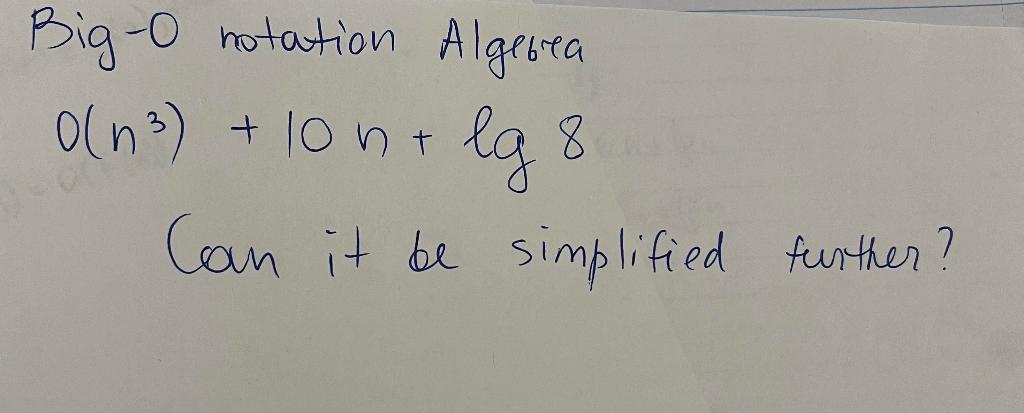 Big-O notation Algebra
O(n³) + 10 n + lg 8
Can it be simplified further?